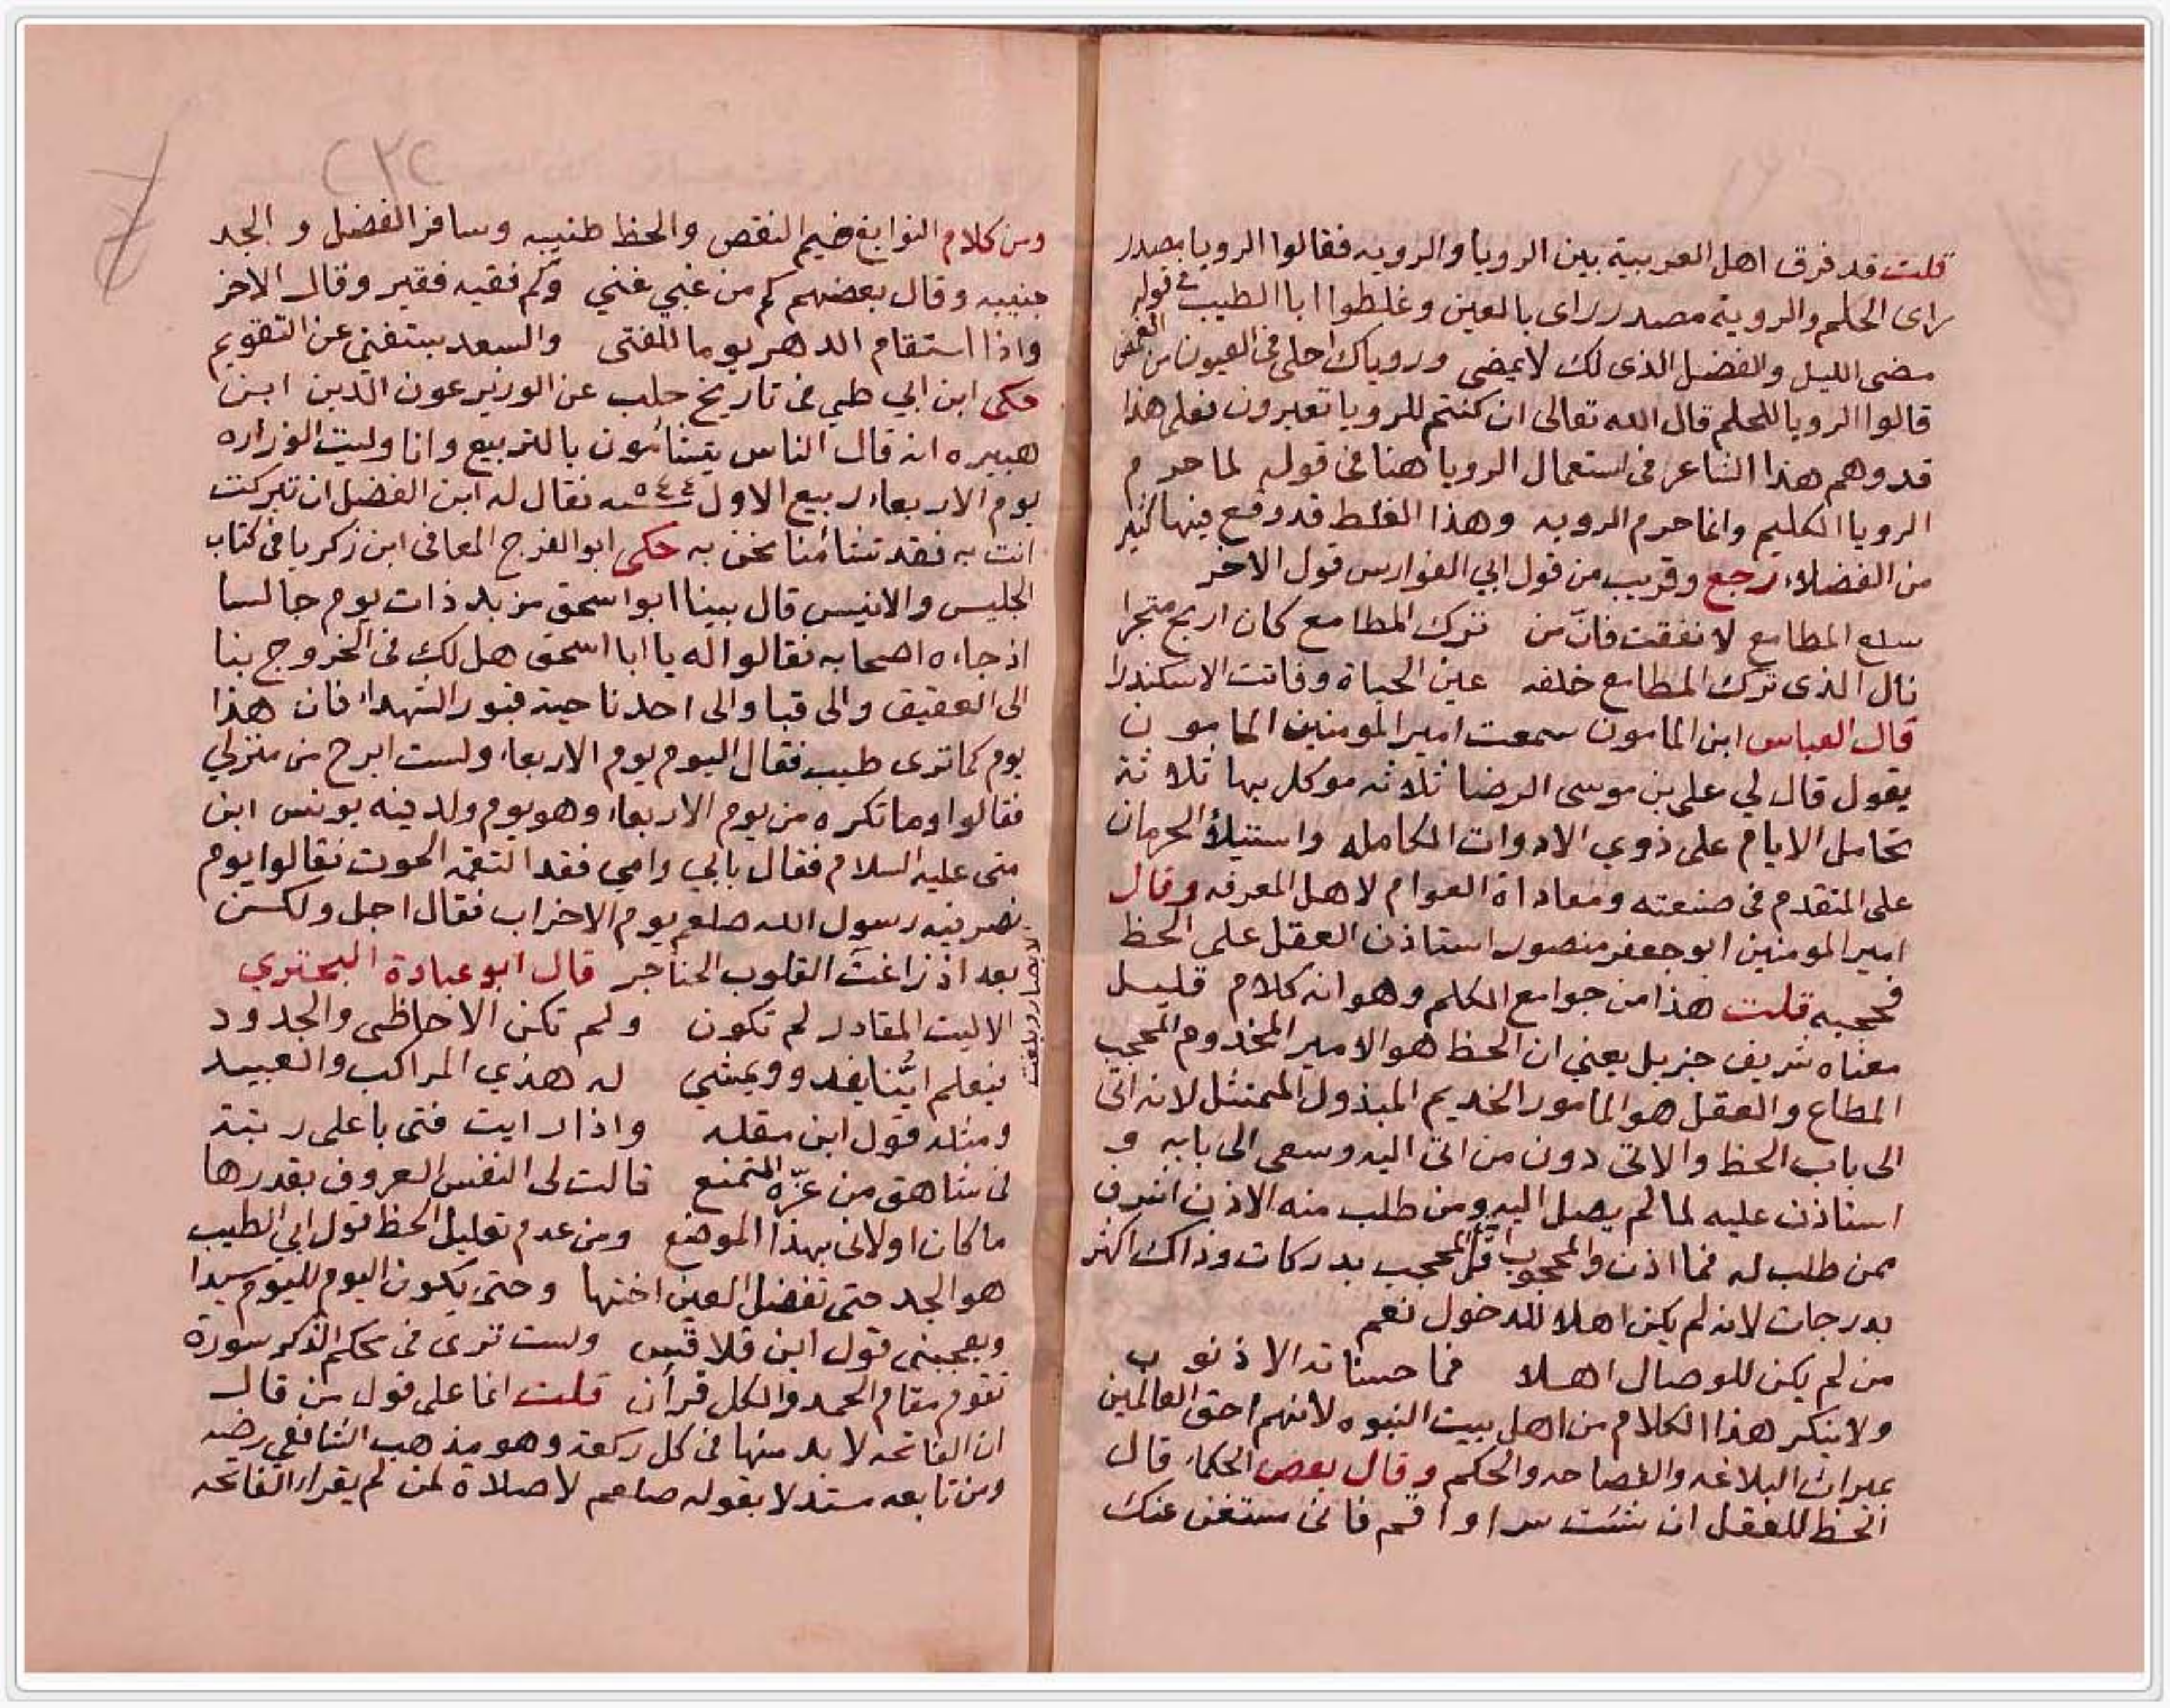 قلت قد فرق اهل العربية بين الرويا والرويه فقالوا الرويا مصدر
راى الحلم والروية مصدر راى بالعين وغلطوا ابا الطيب في قوله
مضى الليل والفضل الذى لك لا يمضى وروياك احلى فى العيون من الغمض
قالوا الرويا للحلم قال الله تعالى ان كنتم للرويا تعبرون فعلى هذا
قد وهم هذا الشاعر فى استعمال الرويا هنا فى قوله لما حرم
الرويا الكليم وانما حرم الرويه وهذا الغلط قد وقع فيها كثير
من الفضلاء رجع وقريب من قول ابي الفوارس قول الاخر
سلع المطامع لا نفقت فان من ترك المطامع كان اربح متجرا
نال الذى ترك المطامع خلفه عين الحياة وفاتت الاسكندرا
قال العباس ابن المامون سمعت امير المومنين المامون
يقول قال لي على بن موسى الرضا ثلاثه موكل بها ثلاثة
تحامل الايام على ذوي الادوات الكامله واستيلأ الحرمان
على المتقدم فى صنعته ومعاداة العوام لاهل المعرفه وقال
امير المومنين ابو جعفر منصور استاذن العقل على الحظ
فحجبه قلت هذا من جوامع الكلم وهو انه كلام قليل
معناه شريف جزيل يعني ان الحظ هو الامير المخدوم المحجب
المطاع والعقل هو المامور الخديم المبذول الممتثل لانه اتى
الى باب الحظ والاتى دون من اتى اليه وسعى الى بابه و
استاذن عليه لما لم يصل اليه ومن طلب منه الاذن اشرف
ممن طلب له فما اذن والمحجوب اقل المحجب بدركات وذاك اكثر
بدرجات لانه لم يكن اهلا للدخول نعم
من لم يكن للوصال اهلا فما حسناته الا ذنوب
ولا ينكر هذا الكلام من اهل بيت النبوه لانهم احق العالمين
بميراث البلاغه والفصاحه والحكم وقال بعض الحكماء قال
الحظ للعقل ان شئت سر او اقم فانى مستغن عنك
٢٣٢
ومن كلام النوابغ ضيم النقص والحظ طنيبه وسافر الفضل و الجد
جنيبه وقال بعضهم كم من غبي غني وكم فقيه فقير وقال الاخر
واذا استقام الدهر يوما للفتى والسعد يستغنى عن التقويم
حكى ابن ابي طي فى تاريخ حلب عن الوزير عون الدين ابن
هبيره انه قال الناس يتشائمون بالتربيع وانا وليت الوزاره
يوم الاربعاء ربيع الاول سنه ٥٤٤ فقال له ابن الفضل ان تبركت
انت به فقد تشائمنا نحن به حكى ابو الفرج المعافى ابن زكريا فى كتاب
الجليس والانيس قال بينا ابو اسحق مزبد ذات يوم جالسا
اذ جاءه اصحابه فقالوا له يا ابا اسحق هل لك فى الخروج بنا
الى العقيق والى قبا والى احد ناحية قبور الشهداء فان هذا
يوم كما ترى طيب فقال اليوم يوم الاربعاء ولست ابرح من منزلي
فقالوا وما تكره من يوم الاربعاء وهو يوم ولد فيه يونس ابن
متى عليه السلام فقال بابي وامي فقد التقمه الحوت فقالوا يوم
نصر فيه رسول الله صلعم يوم الاحزاب فقال اجل ولكن
بعد اذ زاغت القلوب الحناجر قال ابو عبادة البحتري
الابصار وبلغت
الا ليت المقادر لم تكون ولم تكن الاحاظى والجدود
فيعلم اينا يغدو ويمشي له هذي المراكب والعبيد
ومثله قول ابن مقله واذا رايت فتى باعلى رتبة
فى شاهق من عزه المتمنع قالت لى النفس العروف بقدرها
ما كان اولانى بهذا الموضع ومن عدم تعليل الحظ قول ابي الطيب
هو الجد حتى تفضل العين اختها وحتى يكون اليوم لليوم سيدا
ويعجبنى قول ابن قلاقس ولست ترى فى محكم الذكر سورة
تقوم مقام الحمد والكل قرآن قلت انما على قول من قال
ان الفاتحه لا بد منها فى كل ركعة وهو مذهب الشافعي رضه
ومن تابعه مستدلا بقوله صلعم لا صلاة لمن لم يقراء الفاتحه